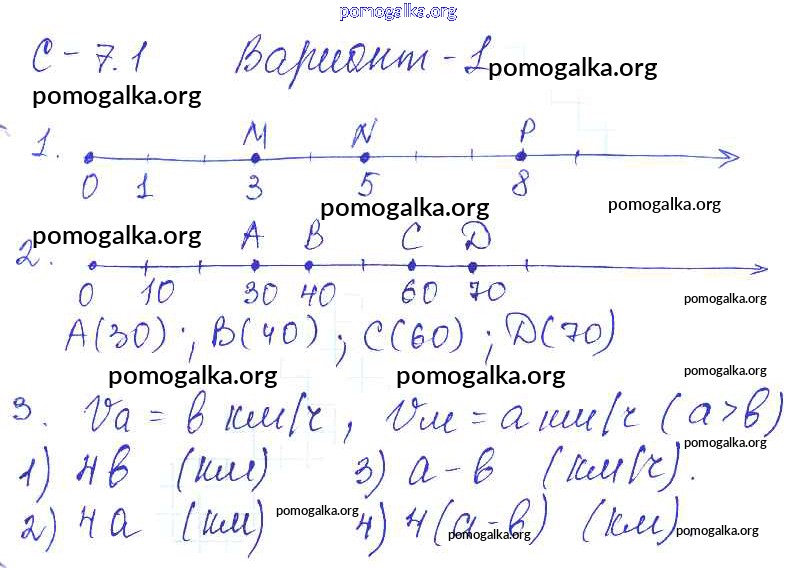 pomogalka.org
С-7.1 Вариант-1 pomogalka.org
pomogalka.org
1. M N P
0 1 3 5 8
pomogalka.org pomogalka.org
pomogalka.org
2. A B C D
0 10 30 40 60 70
pomogalka.org
A(30); B(40); C(60); D(70)
pomogalka.org pomogalka.org pomogalka.org
3. Va = в км/ч, Vм = a км/ч (a>в)
pomogalka.org
1) 4в (км) 3) a-в (км/ч).
2) 4a (км) pomogalka.org 4) 4(a-в) (км) pomogalka.org
pomogalka.org